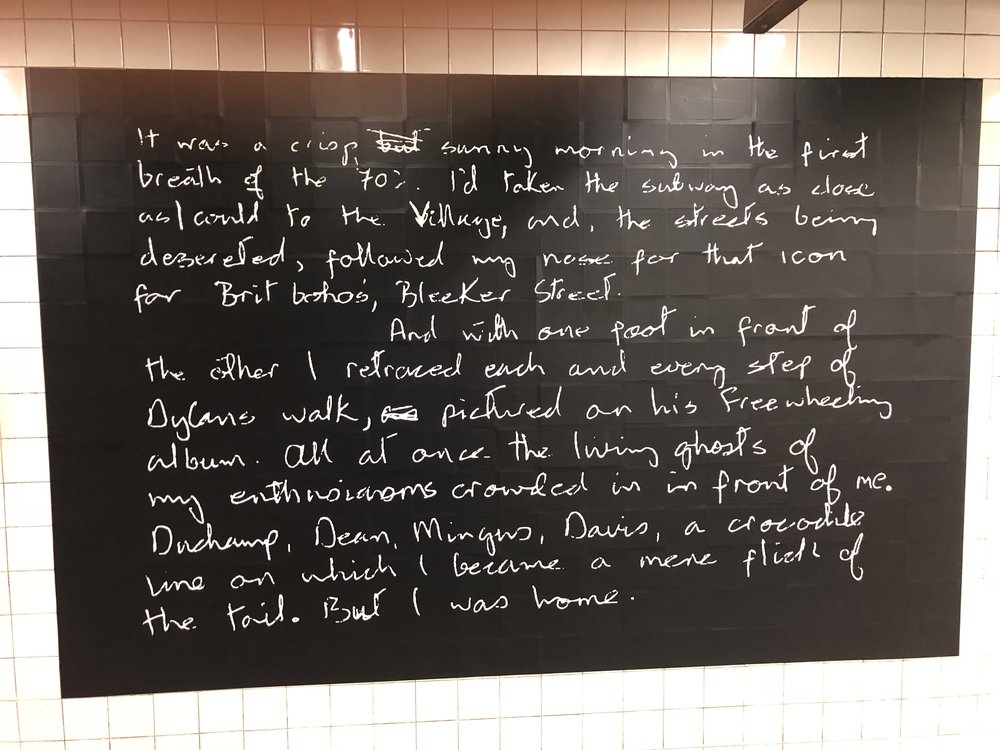 It was a crisp, but sunny morning in the first
breath of the '70s. I'd taken the subway as close
as I could to the Village, and, the streets being
desereted, followed my nose for that icon
for Brit boho's, Bleeker Street.
And with one foot in front of
the other I retraced each and every step of
Dylans walk, pictured on his Freewheeling
album. All at once the living ghosts of
my enthusiasms crowded in in front of me.
Duchamp, Dean, Mingus, Davis, a crocodile
line on which I became a mere flick of
the tail. But I was home.